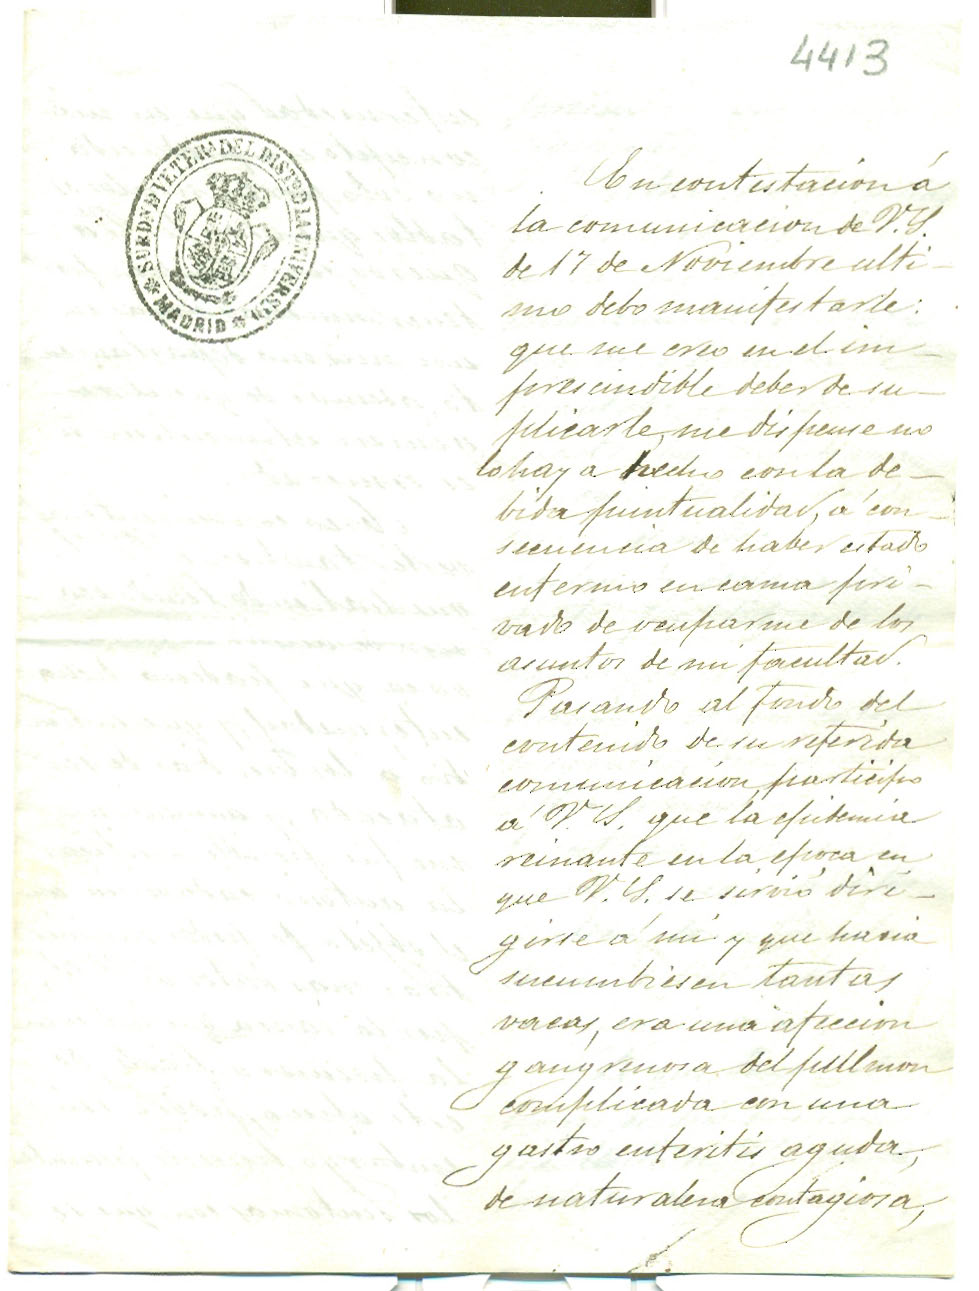 4413
SUBDN. DE VETERA. DEL DISTO. D LA UNIVERSID.
MADRID
En contestacion á
la comunicacion de V. S.
de 17 de Noviembre ulti-
mo debo manifestarle:
que me creo en el im-
prescindible deber de su-
plicarle, me dispense no
lo haya hecho con la de-
bida puntualidad, á con-
secuencia de haber estado
enfermo en cama pri-
vado de ocuparme de los
asuntos de mi facultad.
Pasando al fondo del
contenido de su referida
comunicacion, participo
á V. S. que la epidemia
reinante en la epoca en
que V. S. se sirvió diri-
girse á mi y que hacia
sucumbiesen tantas
vacas, era una afeccion
gangrenosa del pullmon
complicada con una
gastro enteritis aguda,
de naturalera contagiosa,